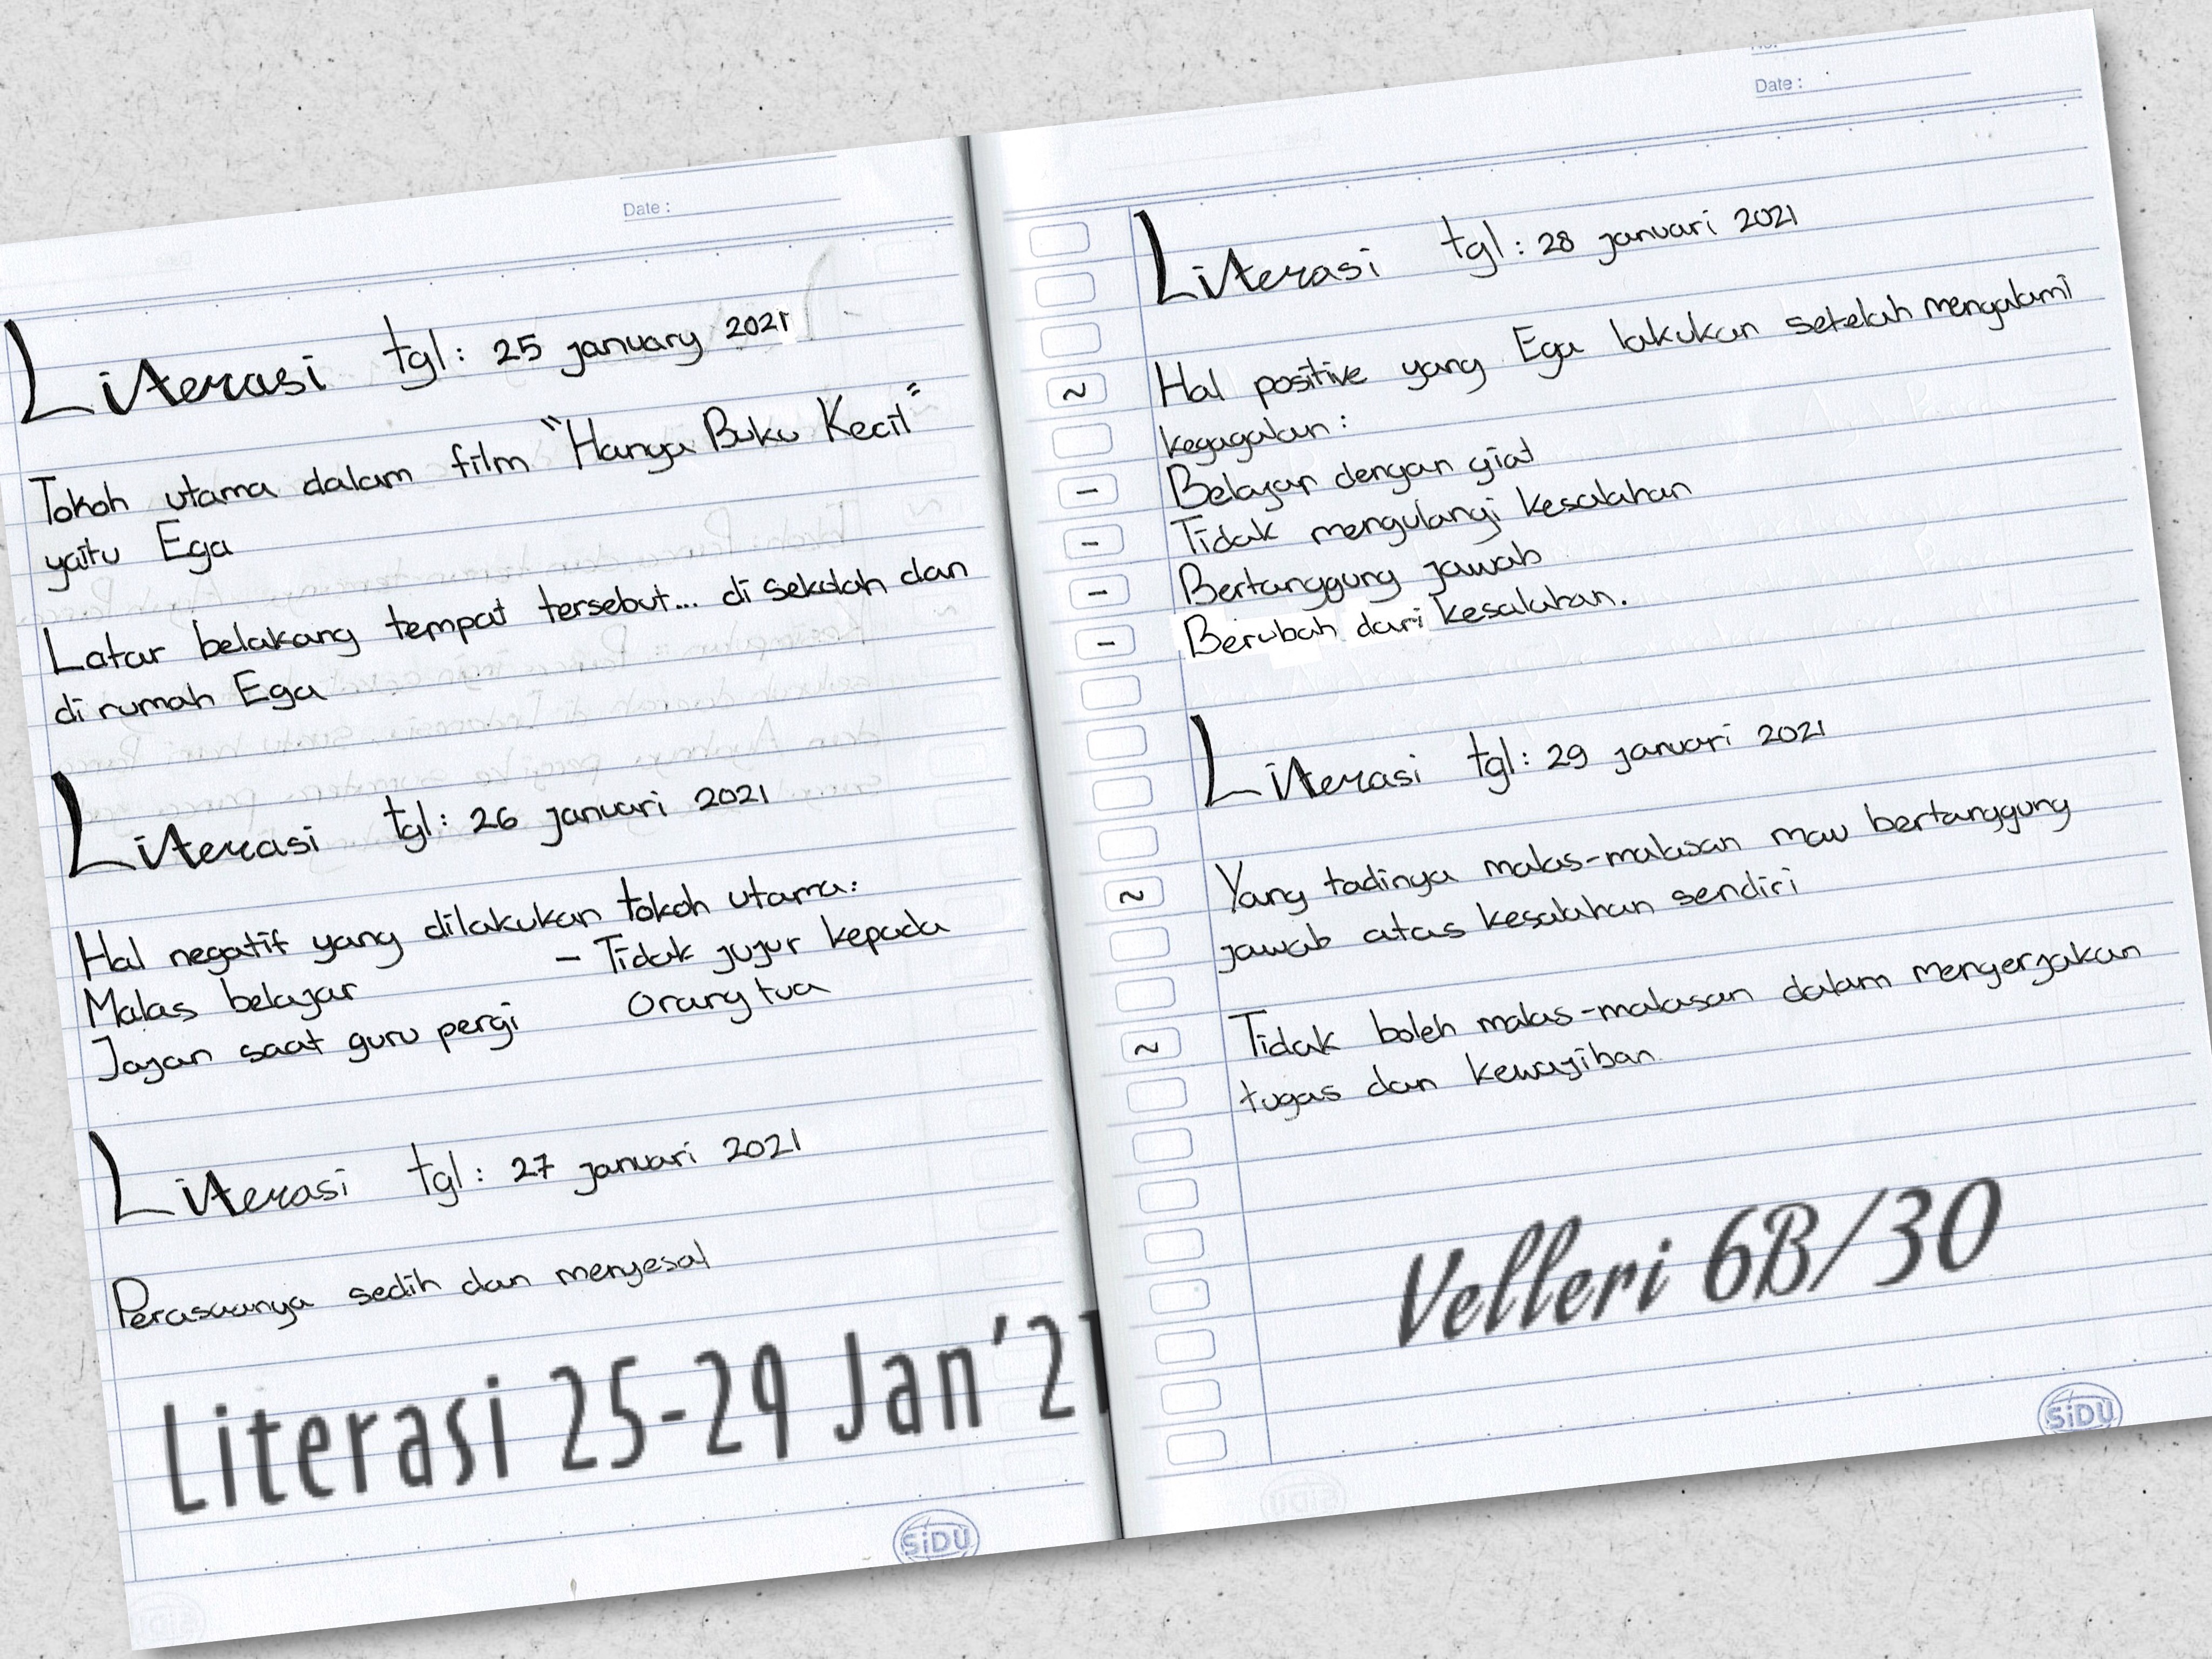 Date :
Literasi tgl : 25 january 2021
Tokoh utama dalam film "Hanya Buku Kecil"
yaitu Ega
Latar belakang tempat tersebut... di sekolah dan
di rumah Ega
Literasi tgl : 26 januari 2021
Hal negatif yang dilakukan tokoh utama:
Malas belajar - Tidak jujur kepada
Jajan saat guru pergi Orang tua
Literasi tgl : 27 januari 2021
Perasaanya sedih dan menyesal
Literasi 25-29 Jan'21
SiDU
No:
Date :
Literasi tgl : 28 januari 2021
~ Hal positive yang Ega lakukan setelah mengalami
kegagalan :
- Belajar dengan giat
- Tidak mengulangi kesalahan
- Bertanggung jawab
- Berubah dari kesalahan.
Literasi tgl : 29 januari 2021
~ Yang tadinya malas-malasan mau bertanggung
jawab atas kesalahan sendiri
~ Tidak boleh malas-malasan dalam mengerjakan
tugas dan kewajiban.
Velleri 6B/30
SiDU